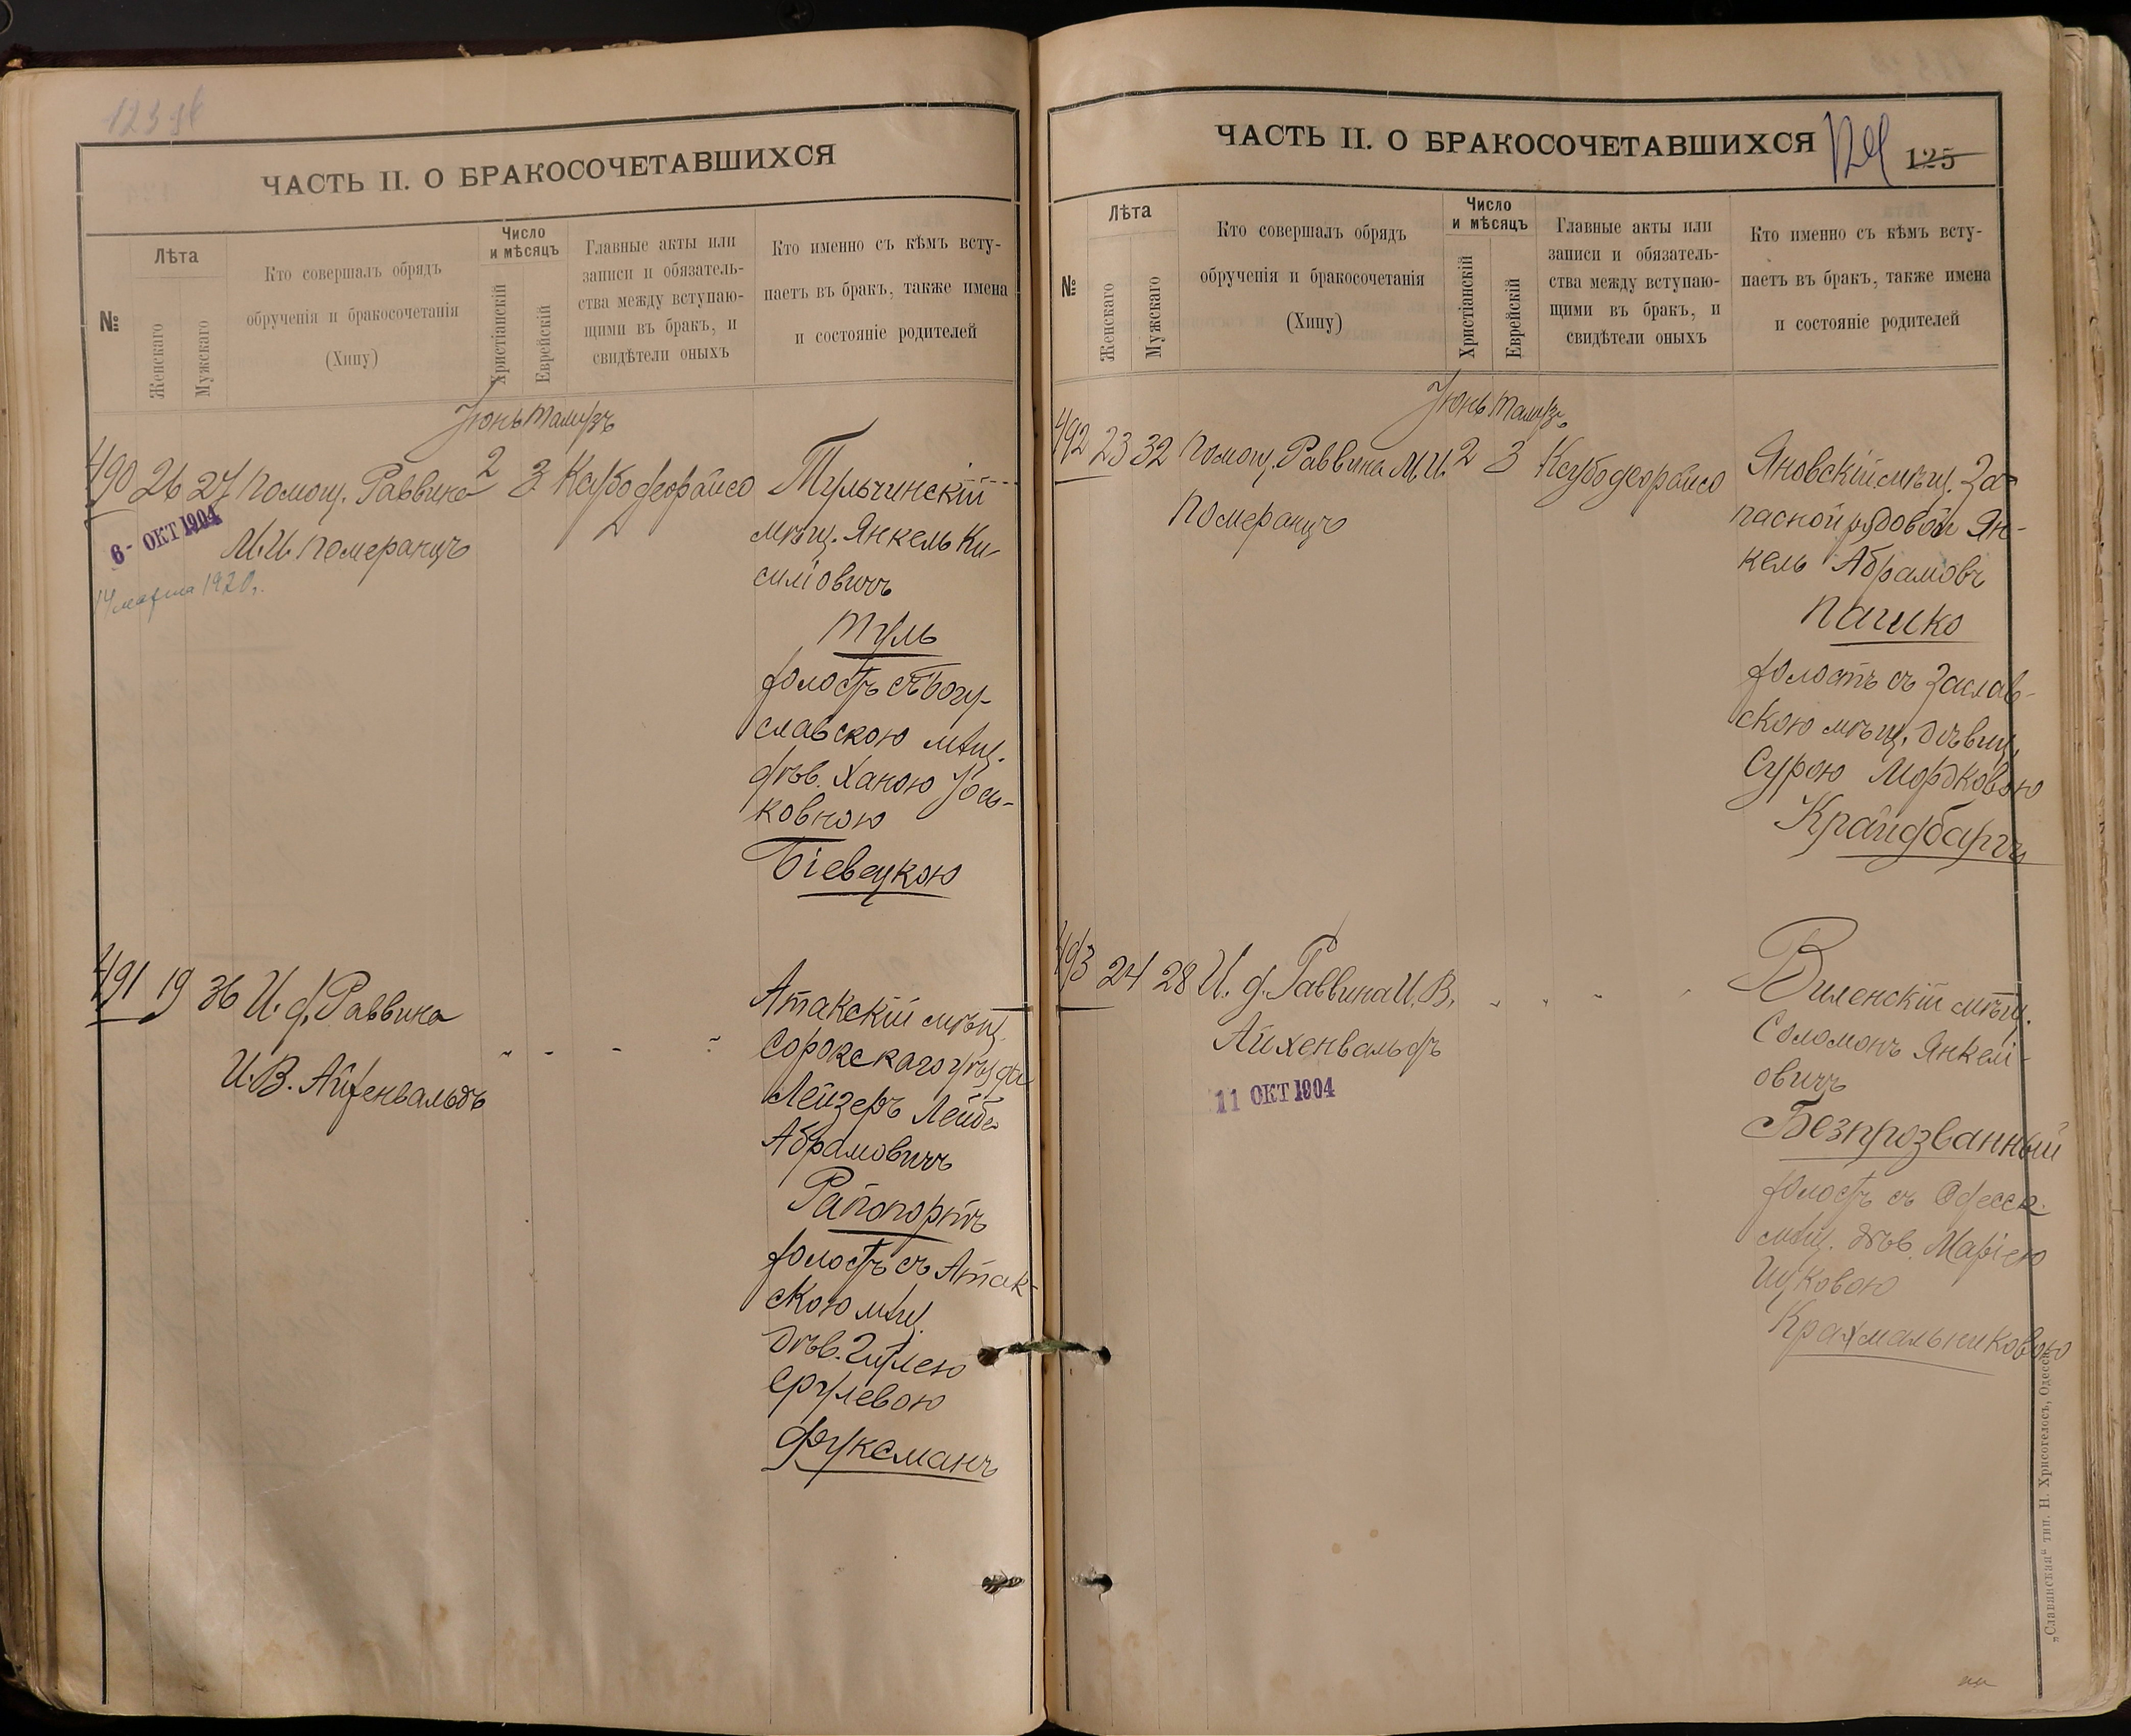 ЧАСТЬ II. О БРАКОСОЧЕТАВШИХСЯ
№
Лѣта
Женскаго
Мужскаго
Кто совершалъ обрядъ
обрученія и бракосочетанія
(Хипу)
Число
и мѣсяцъ
Христіанскій
Еврейскій
Главные акты или
записи и обязатель-
ства между вступаю-
щими въ бракъ, и
свидѣтели оныхъ
Кто именно съ кѣмъ всту-
паетъ въ бракъ, также имена
и состояніе родителей
Іюнь Тамузъ
490 26 27 Помощ. Раввина 2 3
6- ОКТ 1904
М. И. Померанцъ
14 марта 1920 г.
Тульчинскій
мѣщ. Янкель Ки-
силіовичъ
Туль
холостъ съ Богу-
славскою мѣщ.
дѣв. Ханою Іось-
ковною
Біевецкою
491 19 36 И. д. Раввина
И. В. Айхенвальдъ
Атакскій мѣщ.
Сорокскаго уѣзда
Лейзеръ Лейбъ
Абрамовичъ
Рапопортъ
холостъ съ Атак-
скою мѣщ.
дѣв.
Срулевою
Фуксманъ
ЧАСТЬ II. О БРАКОСОЧЕТАВШИХСЯ
124 125
№
Лѣта
Женскаго
Мужскаго
Кто совершалъ обрядъ
обрученія и бракосочетанія
(Хипу)
Число
и мѣсяцъ
Христіанскій
Еврейскій
Главные акты или
записи и обязатель-
ства между вступаю-
щими въ бракъ, и
свидѣтели оныхъ
Кто именно съ кѣмъ всту-
паетъ въ бракъ, также имена
и состояніе родителей
Іюнь Тамузъ
492 23 32 Помощ. Раввина М. И. 2 3
Померанцъ
Яновскій мѣщ. За-
пасной рядовой Ян-
кель Абрамовъ
Пашко
холостъ съ Заслав-
скою мѣщ. дѣвиц.
Сурою Мордковою
Крайдбаргъ
493 24 28 И. д. Раввина И. В.
Айхенвальдъ
11 ОКТ 1904
Виленскій мѣщ.
Соломонъ Янкелі-
овичъ
Безпрозванный
холостъ съ Одесск.
мѣщ. дѣв. Маріею
Ицковою
Крахмальниковою
„Славянская“ тип. Н. Хрисогелосъ, Одесса